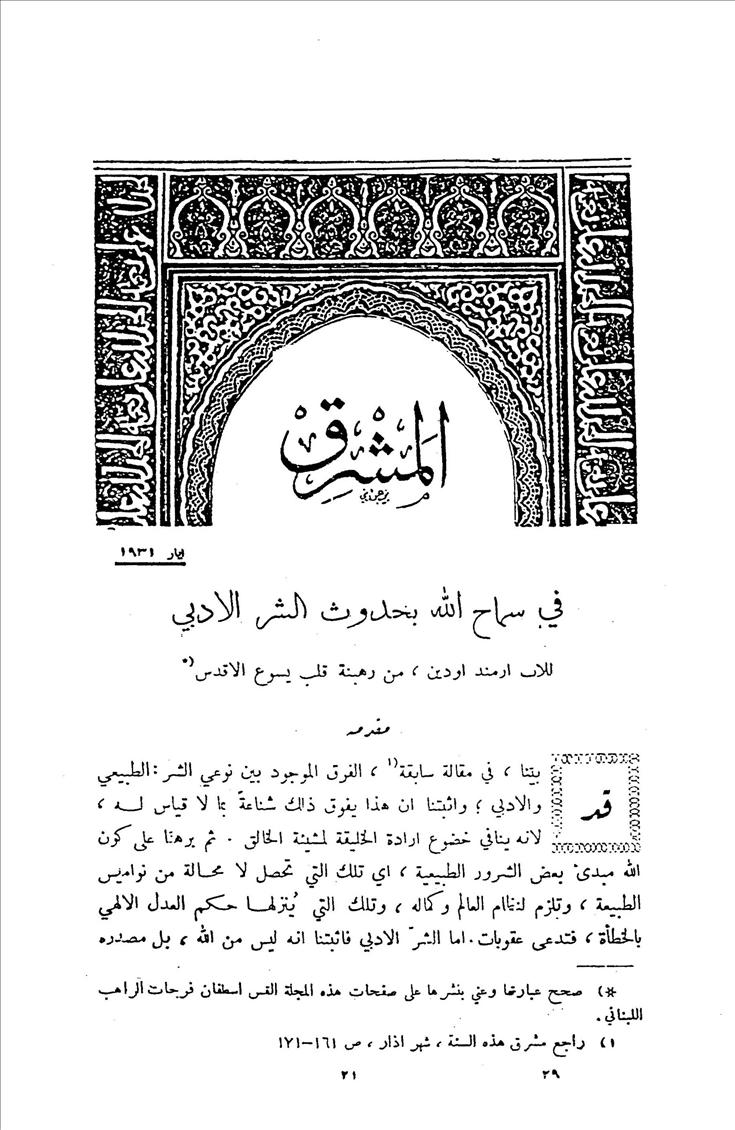 المشرق
ايار ١٩٣١
في سماح الله بحدوث الشر الادبي
للاب ارمند اودين ، من رهبنة قلب يسوع الاقدس *)
مقدمة
قد بينا ، في مقالة سابقة ١) ، الفرق الموجود بين نوعي الشر : الطبيعي
والادبي ؛ واثبتنا ان هذا يفوق ذاك شناعةً بما لا قياس لـه ،
لانه ينافي خضوع ارادة الخليقة لمشيئة الخالق . ثم برهنَّا على كون
الله مبدئ بعض الشرور الطبيعية ، اي تلك التي تحصل لا محالة من نواميس
الطبيعة ، وتلزم لنظام العالم وكماله ، وتلك التي يُنزلهـا حكم العدل الالهي
بالخطأة ، فتدعى عقوبات . اما الشرّ الادبي فاثبتنا انه ليس من الله ، بل مصدره
*) صحح عبارتها وعني بنشرها على صفحات هذه المجلة القس اسطفان فرحات الراهب
اللبناني .
١) راجع مشرق هذه السنة ، شهر اذار ، ص ١٦١–١٧١
٢٩ ٢١